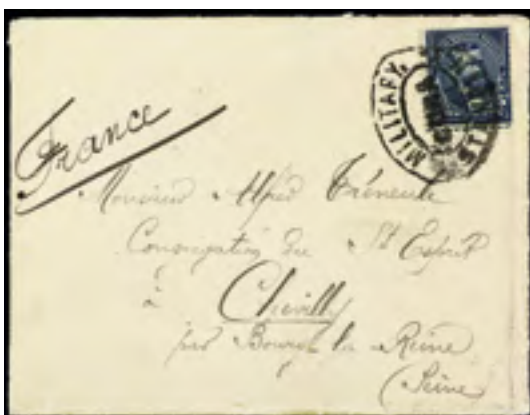 MILITARY.
France
Monsieur Alfred
Congrégation du St Esprit
à
Chevilly
par Bourg la Reine
(Seine)